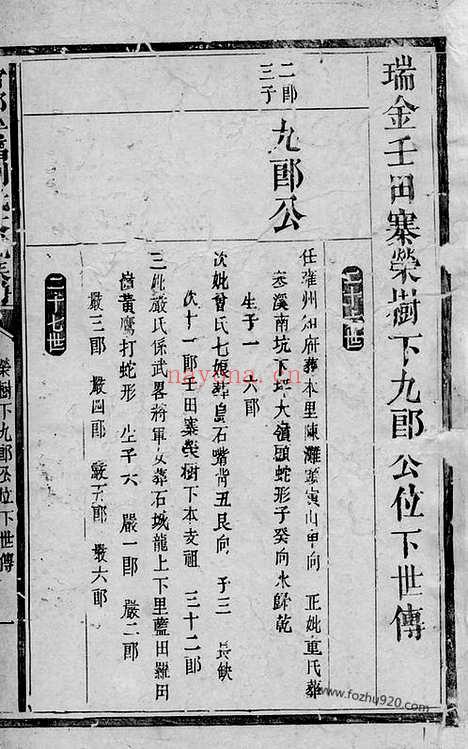 瑞金壬田寨榮樹下九郎公位下世傳
二郎
三子
九郎公
任雍州知府葬本里陳灘頭寅山申向 正妣童氏葬
寒溪南坑下坪大嶺頭蛇形子癸向水歸乾
生子一 六郎
次妣曾氏七娘葬烏石嘴背丑艮向 子三 長缺
次十一郎壬田寨榮樹下本支祖 三十二郎
三妣嚴氏係武畧將軍女葬石城龍上下里藍田羅田
黃鷹打蛇形 生子六 嚴一郎 嚴二郎
嚴三郎 嚴四郎 嚴五郎 嚴六郎
二十七世
榮樹下九郎公位下世傳
一
nayona.cn
www.fozhu920.com